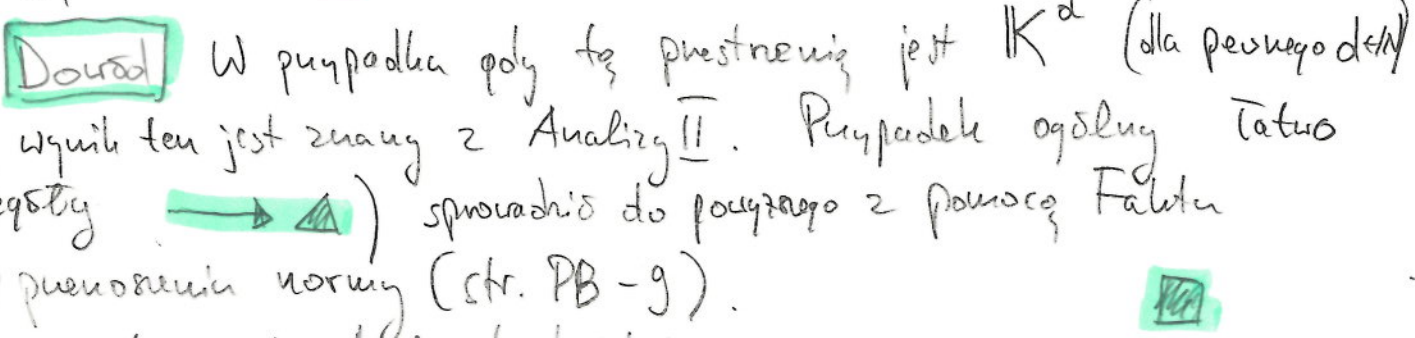 Dowód W przypadku gdy tą przestrzenią jest 𝕂^d (dla pewnego d∈ℕ)
wynik ten jest znany z Analizy II. Przypadek ogólny łatwo
egóły → △) sprowadzić do powyższego z pomocą Faktu
przenoszeniu normy (str. PB-9).